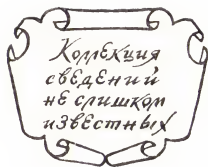 Коллекция
сведений
не слишком
известных